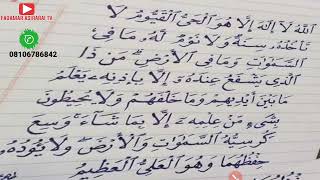 FADAMAR ASIRARAI TV
08106786842
الله لا إله إلا هو الحي القيوم لا
تأخذه سنة ولا نوم له ما في
السموات وما في الأرض من ذا
الذي يشفع عنده إلا بإذنه يعلم
ما بين أيديهم وما خلفهم ولا يحيطون
بشيء من علمه إلا بما شاء وسع
كرسيه السموات والأرض ولا يؤده
حفظهما وهو العلي العظيم